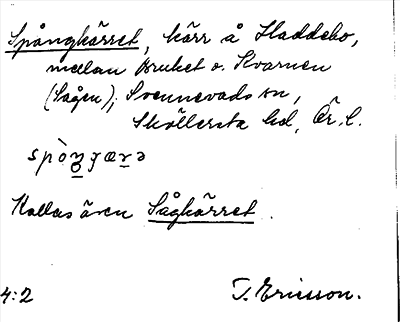 Spångkärret, kärr å Haddebo,
mellan Bruket o. Kvarnen
(Sågen), Svennevads sn,
Sköllersta hd, Ör. l.
Kallas även Sågkärret.
4:2 T. Ericsson.